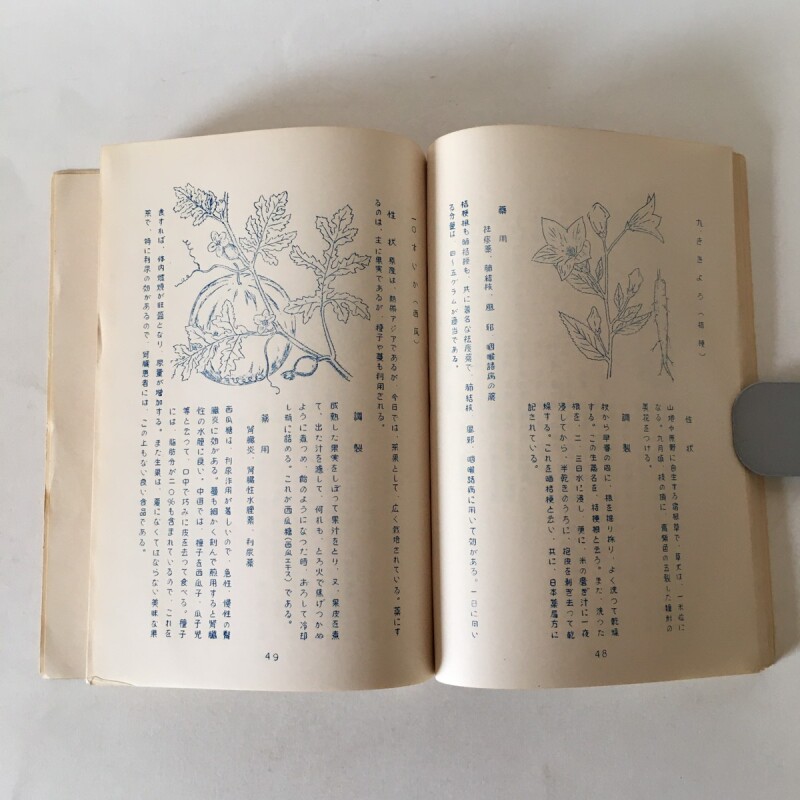 九、ききょう（桔梗）
性　状
山地や原野に自生する宿根草で、草丈は、一米位に
なる。九月頃、枝の頂に、紫碧色の五裂した鐘形の
美花をつける。
調　製
秋から早春の頃に、根を掘り採り、よく洗つて乾燥
する。この生薬名を、桔梗根と云う。また、洗つた
根を、二、三日水に浸し、更に、米の磨ぎ汁に一夜
浸してから、半乾きのうちに、粗皮を剥ぎ去つて乾
燥する。これを晒桔梗と云い、共に、日本薬局方に
記されている。
薬　用
祛痰薬、肺結核、風邪、咽喉諸病の薬
桔梗根も晒桔梗も、共に著名な祛痰薬で、肺結核、風邪、咽喉諸病に用いて効がある。一日に用い
る分量は、四〜五グラムが適当である。
48
一〇すいか（西瓜）
性　状　原産は、熱帯アジアであるが、今日では、蔬果として、広く栽培されている。薬にす
るのは、主に果実であるが、種子や蔓も利用される。
調　製
成熟した果実をしぼつて果汁をとり、又、果皮を煮
て、出た汁を漉して、何れも、とろ火で焦げつかぬ
ように煮つめ、飴のようになつた時、おろして冷却
し瓶に詰める。これが西瓜糖（西瓜エキス）である。
薬　用
腎臓炎、腎臓性水腫薬、利尿薬
西瓜糖は、利尿作用が著しいので、急性、慢性の腎
臓炎に効がある。蔓も細かく刻んで煎用すると腎臓
性の水腫に良い。中国では、種子を西瓜子、瓜子児
等と云つて、口中で巧みに皮を去つて食べる。種子
には、脂肪分が二〇％も含まれているので、これを
食すれば、体内燃焼が旺盛となり、尿量が増加する。また生果は、夏になくてはならない美味な果
菜で、特に利尿の効があるので、腎臓患者には、この上もない良い食品である。
49